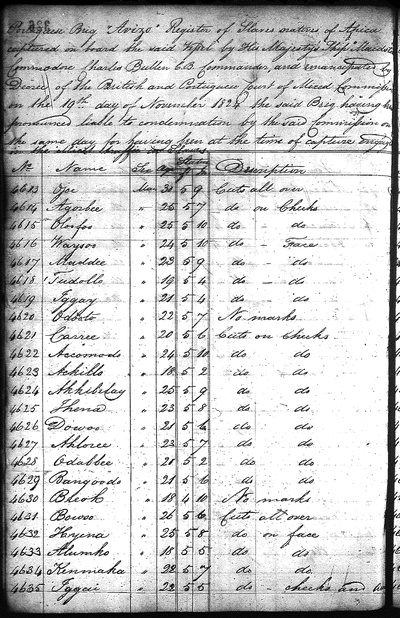 Portuguese Brig "Avizo" Register of Slaves natives of Africa
captured on board the said Vessel by His Majesty's Ship Maidstone
Commodore Charles Bullen C.B. Commander, and emancipated by
Decree of the British and Portuguese Court of Mixed Commission
on the 10th day of November 1824 the said Brig having been
pronounced liable to condemnation by the said Commission on
the same day for having been at the time of capture engaged
No. Name Sex Age Stature F In Description
4613 Ojoe Man 31 5 9 Cuts all over
4614 Agorbee " 26 5 7 do on Cheeks
4615 Olosfoo " 25 5 10 do - do
4616 Waysoo " 24 5 10 do - Face
4617 Muddee " 23 5 9 do - do
4618 Tudollo " 19 5 4 do - do
4619 Iggay " 21 5 4 do - do
4620 Odooto " 22 5 7 No marks
4621 Carree " 20 5 6 Cuts on Cheeks
4622 Accomodo " 24 5 10 do do
4623 Ackillo " 18 5 2 do do
4624 Akkibelay " 25 5 9 do do
4625 Thena " 23 5 8 do do
4626 Dowoo " 21 5 6 do do
4627 Ahloree " 23 5 7 do do
4628 Odabbee " 20 5 2 do do
4629 Bangoodo " 21 5 6 do do
4630 Bleok " 18 4 10 No marks
4631 Bowoo " 26 5 6 Cuts all over
4632 Hryena " 25 5 8 do on face
4633 Alumko " 18 5 5 do do
4634 Kenmaka " 22 5 7 do do
4635 Iggai " 22 5 5 do - cheeks and